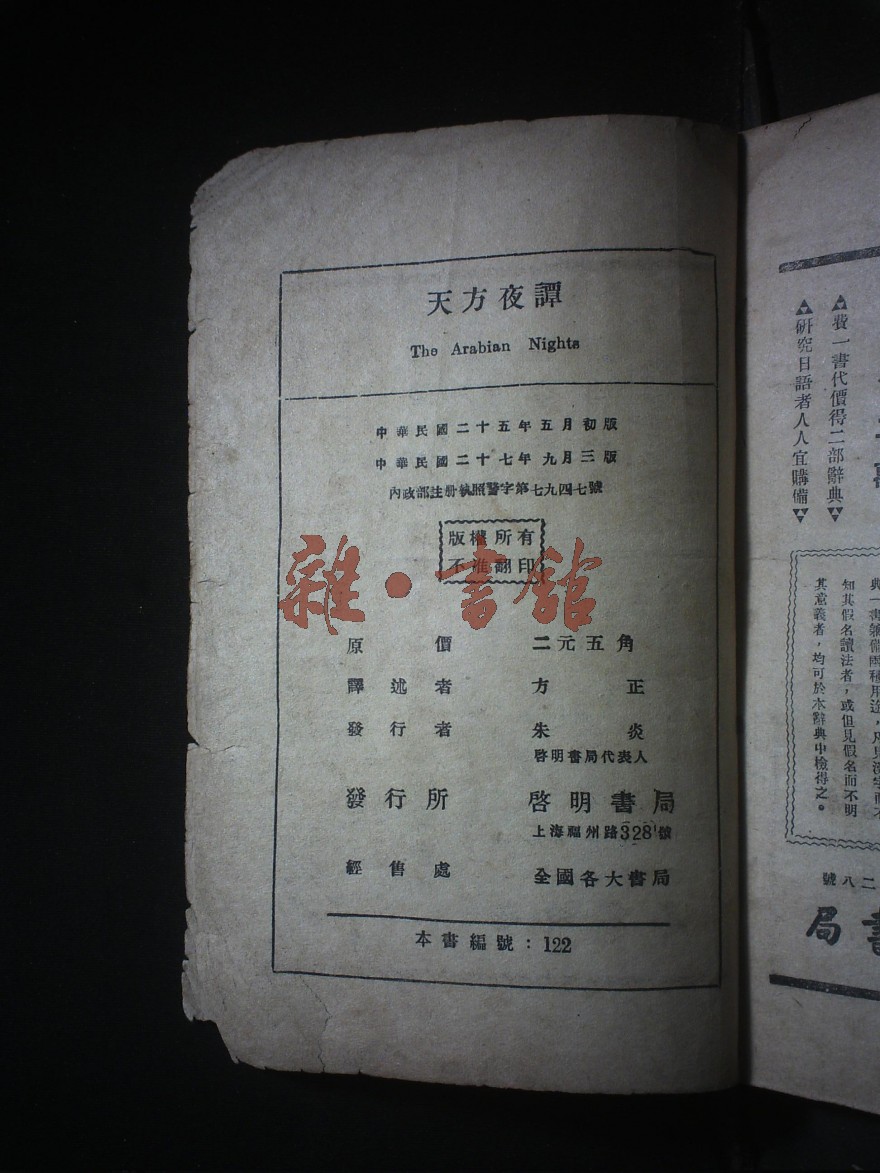 天方夜譚
The Arabian Nights
中華民國二十五年五月初版
中華民國二十七年九月三版
內政部註册執照警字第七九四七號
版權所有
不准翻印
雜·書館
原價 二元五角
譯述者 方正
發行者 朱炎
啓明書局代表人
發行所 啓明書局
上海福州路328號
經售處 全國各大書局
本書編號：122
費一書代價得二部辭典
研究日語者人人宜購備
知其假名讀法者，或但見假名而不明
其意義者，均可於本辭典中檢得之。
二八號
書局